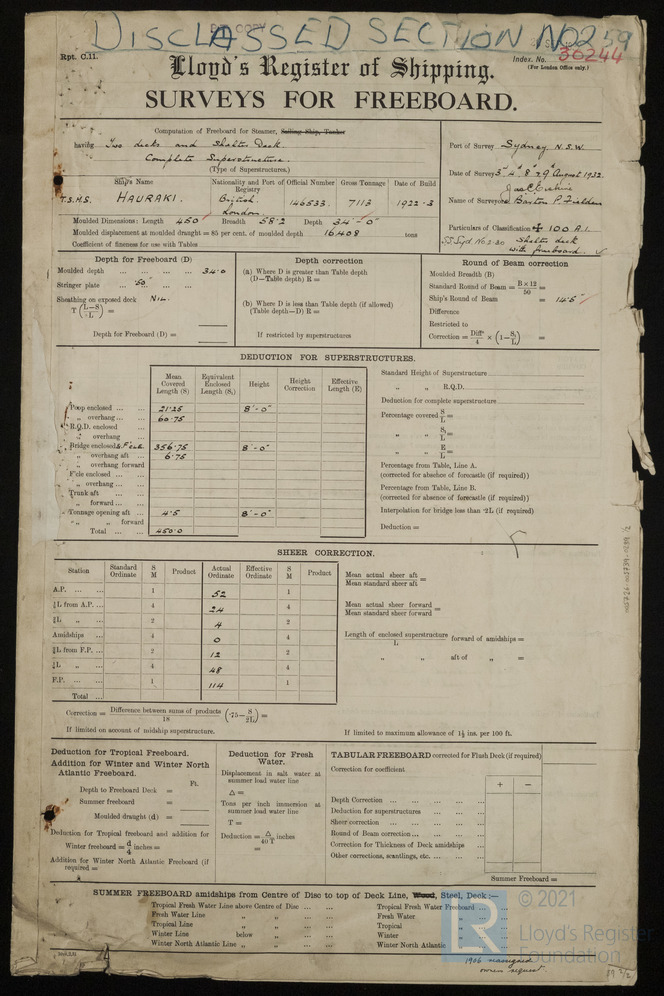 DISCLASSED SECTION No 259
Rpt. C.11.
Index. No. 30244
(For London Office only.)
Lloyd's Register of Shipping.
SURVEYS FOR FREEBOARD.
Computation of Freeboard for Steamer, Sailing Ship, Tanker
having Two decks and Shelter Deck.
Complete Superstructure.
(Type of Superstructures.)
Port of Survey Sydney N.S.W.
Date of Survey 3rd 4th 8th & 9th August 1932.
Name of Surveyor
Particulars of Classification ✠ 100 A.1.
Shelter deck
with freeboard.
Ship's Name Nationality and Port of Registry Official Number Gross Tonnage Date of Build
T.S.M.S. HAURAKI. British. London. 146533. 7113 1922-3
Moulded Dimensions: Length 450 Breadth 58.2 Depth 34'-0"
Moulded displacement at moulded draught = 85 per cent. of moulded depth 16,408 tons
Coefficient of fineness for use with Tables
Depth for Freeboard (D)
Moulded depth ... ... ... ... 34.0
Stringer plate ... .50"
Sheathing on exposed deck Nil.
T (L-S/L) =
Depth for Freeboard (D) =
Depth correction
(a) Where D is greater than Table depth
(D—Table depth) R =
(b) Where D is less than Table depth (if allowed)
(Table depth—D) R =
If restricted by superstructures
Round of Beam correction
Moulded Breadth (B)
Standard Round of Beam = B×12/50 =
Ship's Round of Beam = 14.5"
Difference
Restricted to
Correction = Diffce/4 × (1-S1/L) =
DEDUCTION FOR SUPERSTRUCTURES.
Mean Covered Length (S) Equivalent Enclosed Length (S1) Height Height Correction Effective Length (E)
Poop enclosed ... ... 21.25 8'-0"
„ overhang ... ... 60.75
R.Q.D. enclosed
„ overhang
Bridge enclosed & F'cle 356.75 8'-0"
„ overhang aft ... 6.75
„ overhang forward
F'cle enclosed ... ...
„ overhang ... ...
Trunk aft ... ...
„ forward ... ...
Tonnage opening aft ... 4.5 8'-0"
„ „ forward
Total ... 450.0
Standard Height of Superstructure
„ „ R.Q.D.
Deduction for complete superstructure
Percentage covered S/L =
„ „ S1/L =
„ „ E/L =
Percentage from Table, Line A.
(corrected for absence of forecastle (if required))
Percentage from Table, Line B.
(corrected for absence of forecastle (if required))
Interpolation for bridge less than ·2L (if required)
Deduction =
SHEER CORRECTION.
Station Standard Ordinate S M Product Actual Ordinate Effective Ordinate S M Product
A.P. ... ... 1 52 1
⅙L from A.P. ... 4 24 4
⅓L „ ... 2 4 2
Amidships ... 4 0 4
⅓L from F.P. ... 2 12 2
⅙L „ ... 4 48 4
F.P. ... ... 1 114 1
Total ...
Mean actual sheer aft / Mean standard sheer aft =
Mean actual sheer forward / Mean standard sheer forward =
Length of enclosed superstructure / L forward of amidships =
„ „ aft of „ =
Correction = Difference between sums of products / 18 (·75-S/2L) =
If limited on account of midship superstructure.
If limited to maximum allowance of 1½ ins. per 100 ft.
Deduction for Tropical Freeboard.
Addition for Winter and Winter North
Atlantic Freeboard.
Ft.
Depth to Freeboard Deck =
Summer freeboard =
Moulded draught (d) =
Deduction for Tropical freeboard and addition for
Winter freeboard = d/4 inches =
Addition for Winter North Atlantic Freeboard (if
required =
Deduction for Fresh
Water.
Displacement in salt water at
summer load water line
Δ =
Tons per inch immersion at
summer load water line
T =
Deduction = Δ/40 T inches
=
TABULAR FREEBOARD corrected for Flush Deck (if required)
Correction for coefficient
+ −
Depth Correction ... ... ... ...
Deduction for superstructures ... ...
Sheer correction ... ... ... ...
Round of Beam correction ... ... ...
Correction for Thickness of Deck amidships ...
Other corrections, scantlings, etc. ... ...
Summer Freeboard =
SUMMER FREEBOARD amidships from Centre of Disc to top of Deck Line, Wood, Steel, Deck:—
Tropical Fresh Water Line above Centre of Disc ... ...
Fresh Water Line „ „ ... ...
Tropical Line „ „ ... ...
Winter Line below „ ... ...
Winter North Atlantic Line „ „ ... ...
Tropical Fresh Water Freeboard ...
Fresh Water „
Tropical „
Winter „
Winter North Atlantic „
1906 reassigned
owners request
© 2021
LR
Lloyd's Register
Foundation